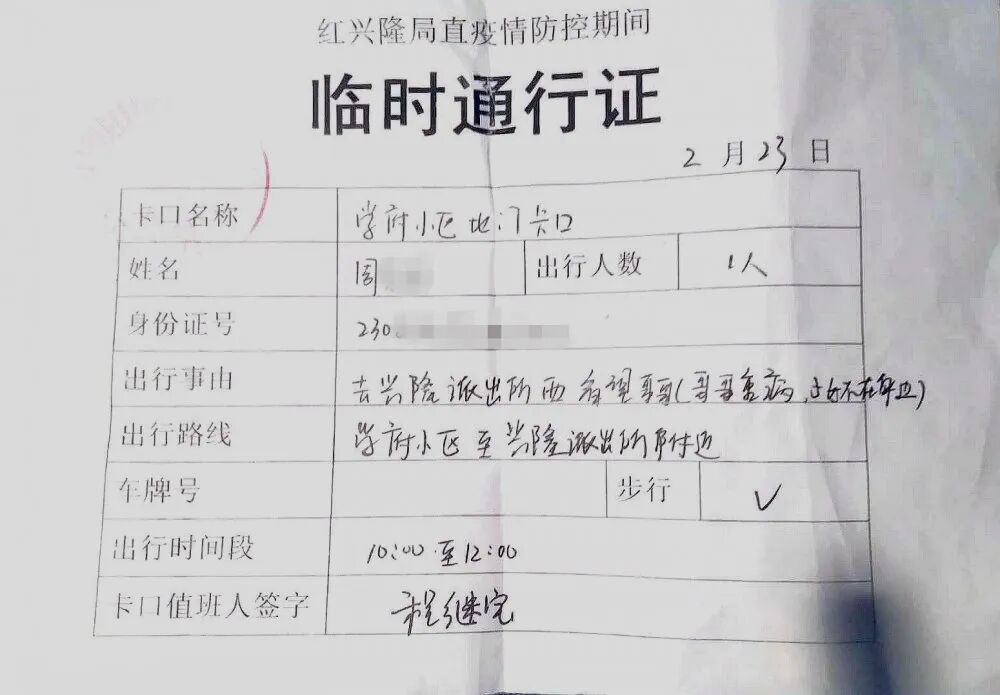 红兴隆局直疫情防控期间
临时通行证
2月23日
卡口名称 学府小区地门卡口
姓名 周 出行人数 1人
身份证号 230
出行事由 去兴隆派出所西看望哥哥(哥哥重病,子女不在身边)
出行路线 学府小区至兴隆派出所附近
车牌号 步行 ✓
出行时间段 10:00至12:00
卡口值班人签字 程继宪